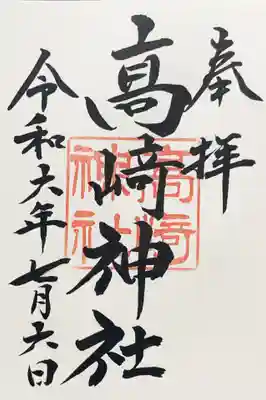 奉拝
高崎神社
高崎
神社
令和六年七月六日